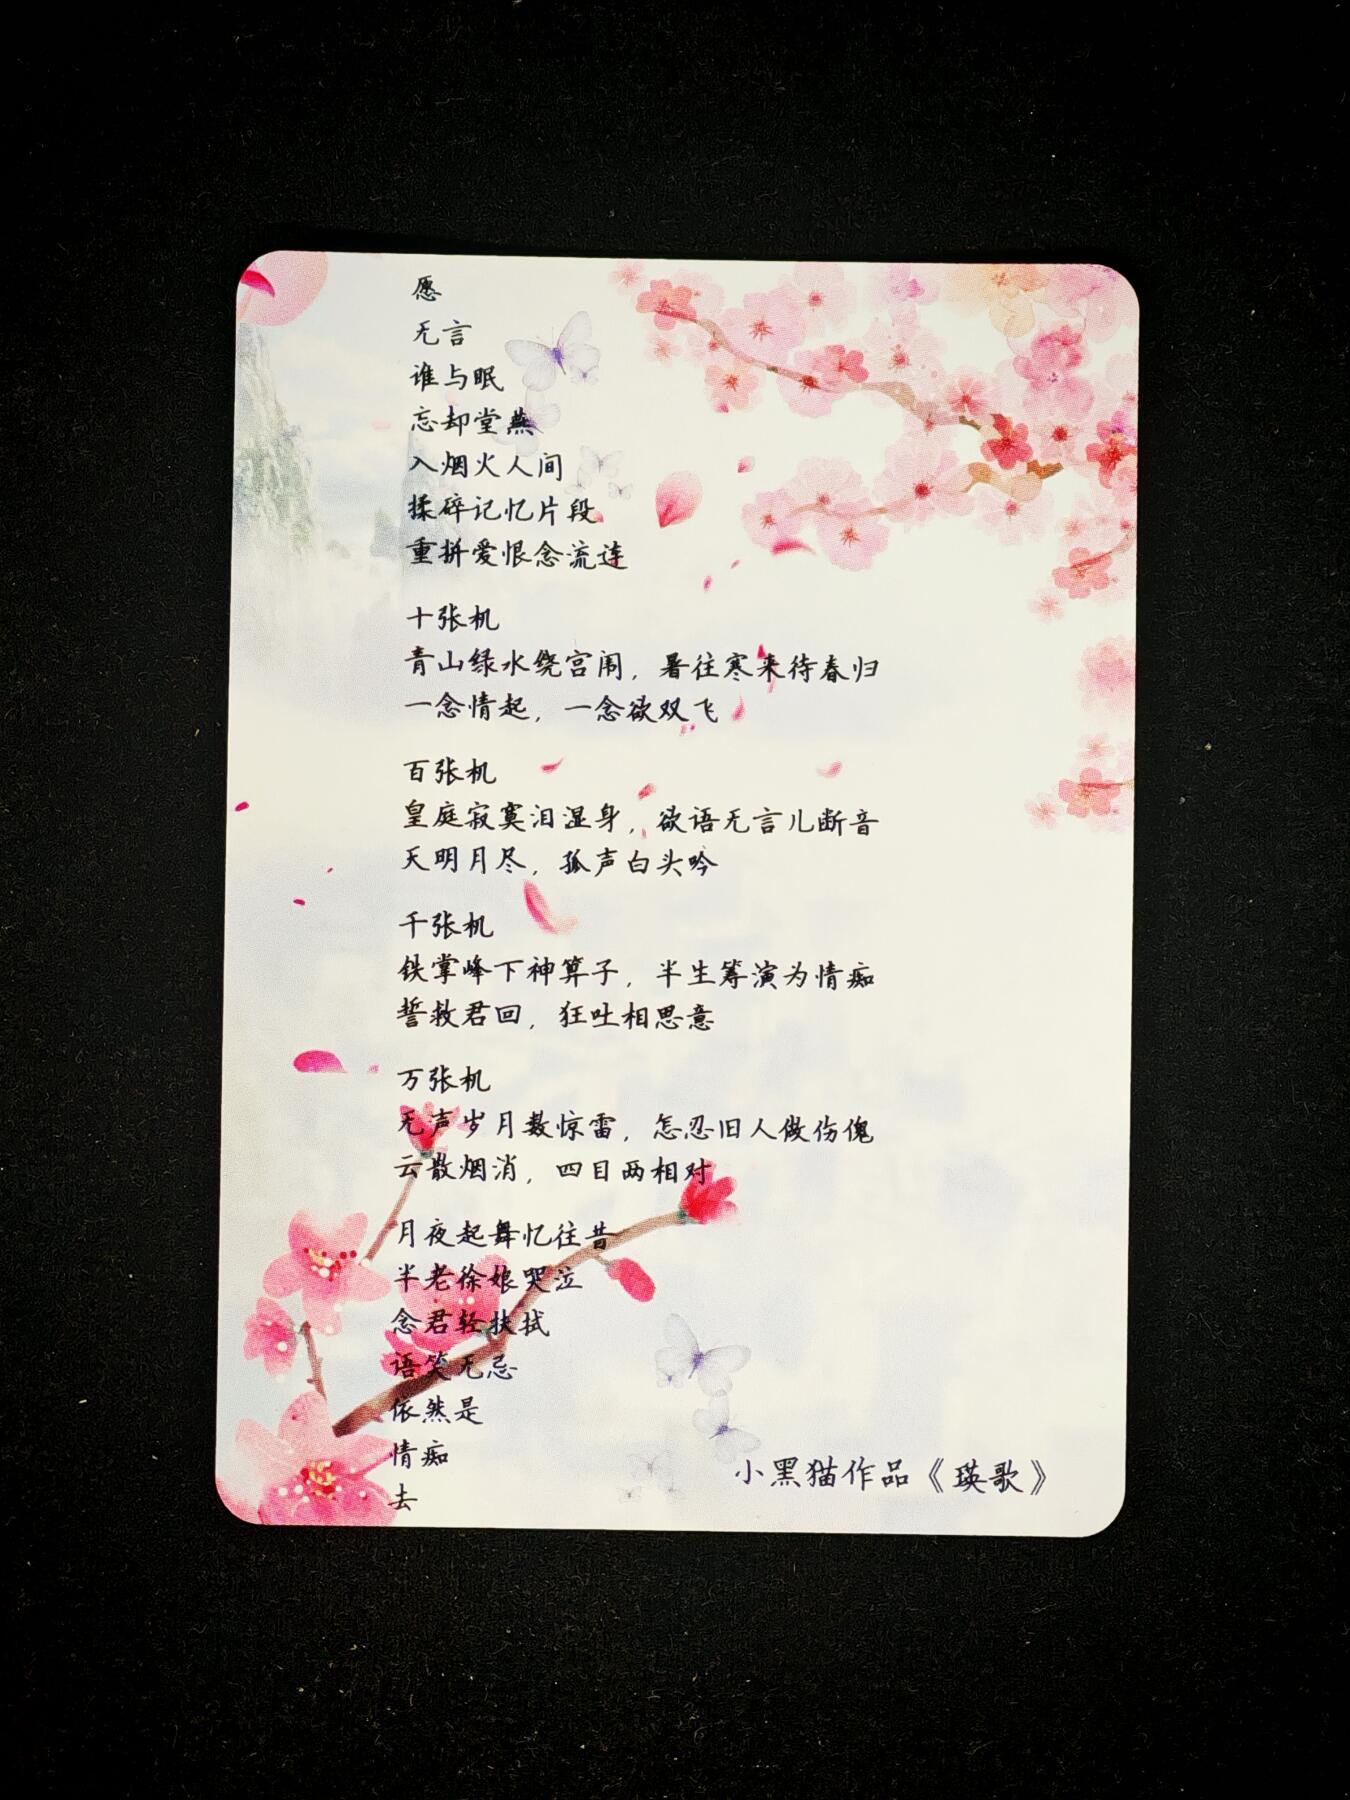 愿
无言
谁与眠
忘却堂燕
入烟火人间
揉碎记忆片段
重拼爱恨念流连
十张机
青山绿水绕宫闱，暑往寒来待春归
一念情起，一念欲双飞
百张机
皇庭寂寞泪湿身，欲语无言儿断音
天明月尽，孤声白头吟
千张机
铁掌峰下神算子，半生筹演为情痴
誓救君回，狂吐相思意
万张机
无声岁月数惊雷，怎忍旧人做伤傀
云散烟消，四目两相对
月夜起舞忆往昔
半老徐娘哭泣
念君轻扶拭
语笑无忌
依然是
情痴
去
小黑猫作品《瑛歌》